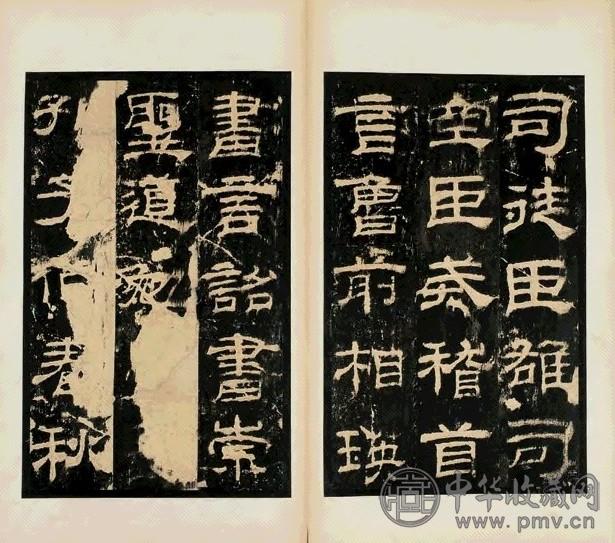 司徒臣雄司
空臣戒稽首
言魯前相瑛
書言詔書崇
聖道勉
孔子作春秋
中华收藏网
www.pmv.cn